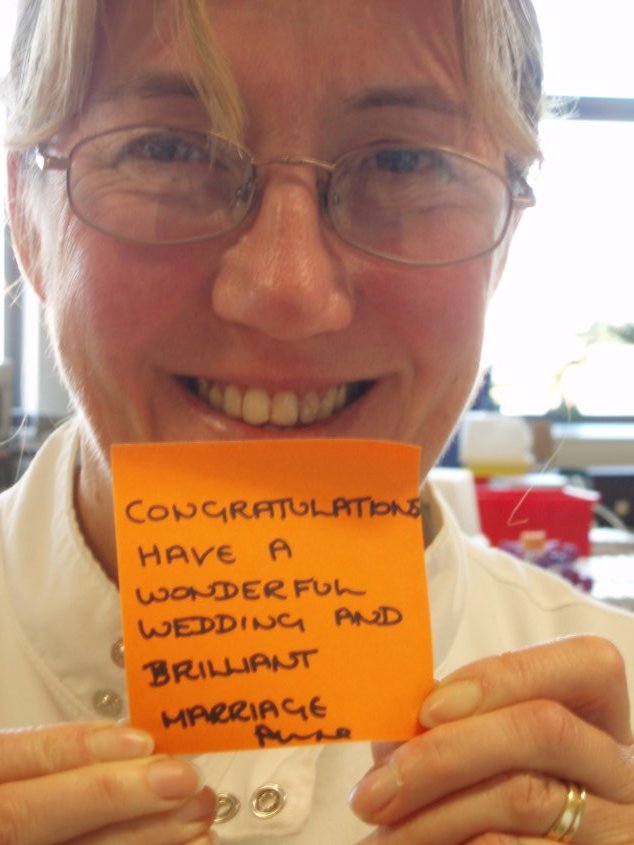 CONGRATULATIONS
HAVE A
WONDERFUL
WEDDING AND
BRILLIANT
MARRIAGE
Anne